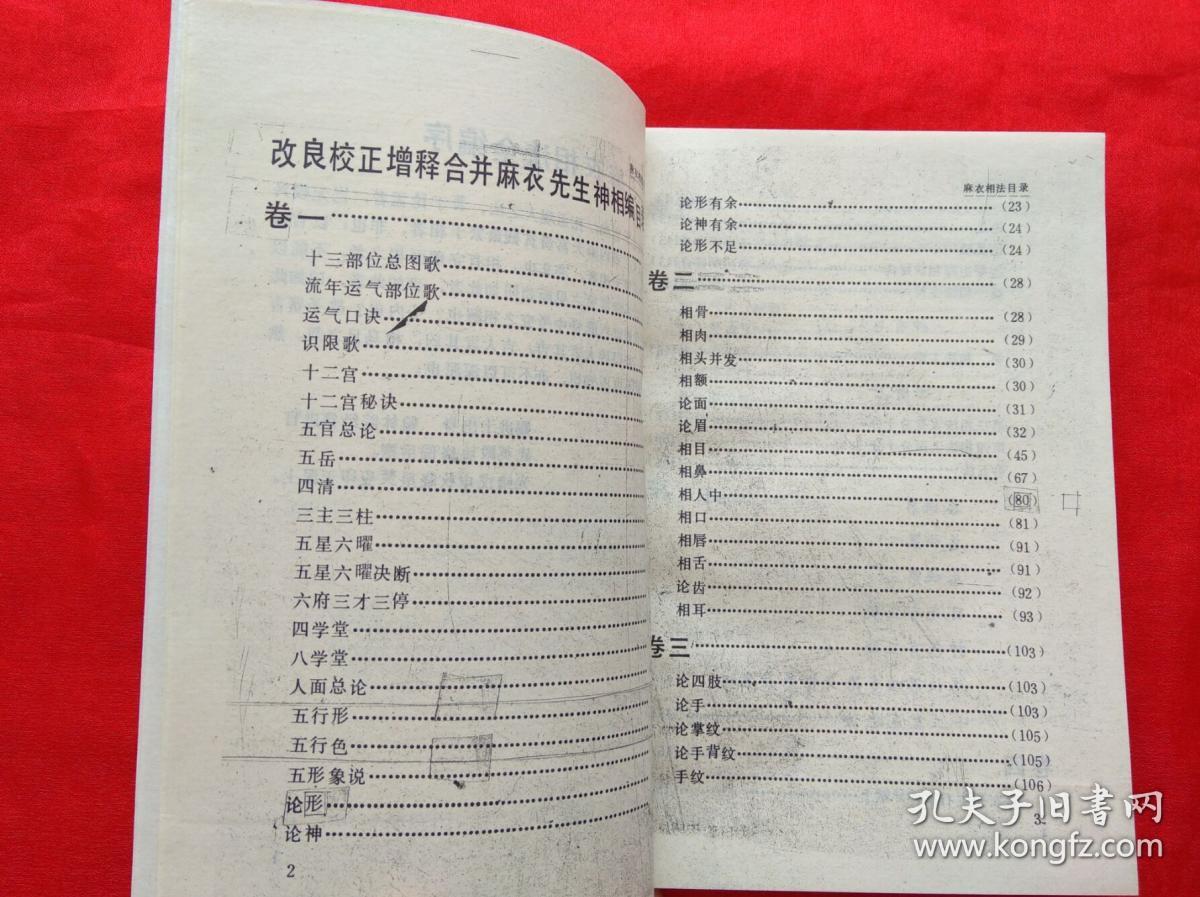 改良校正增释合并麻衣先生神相编目
卷一
十三部位总图歌
流年运气部位歌
运气口诀
识限歌
十二宫
十二宫秘诀
五官总论
五岳
四清
三主三柱
五星六曜
五星六曜决断
六府三才三停
四学堂
八学堂
人面总论
五行形
五行色
五形象说
论形
论神
2
麻衣相法目录
论形有余(23)
论神有余(24)
论形不足(24)
卷二(28)
相骨(28)
相肉(29)
相头并发(30)
相额(30)
论面(31)
论眉(32)
相目(45)
相鼻(67)
相人中(80)
相口(81)
相唇(91)
相舌(91)
论齿(92)
相耳(93)
卷三(103)
论四肢(103)
论手(103)
论掌纹(105)
论手背纹(105)
手纹(106)
3
孔夫子旧书网
www.kongfz.com